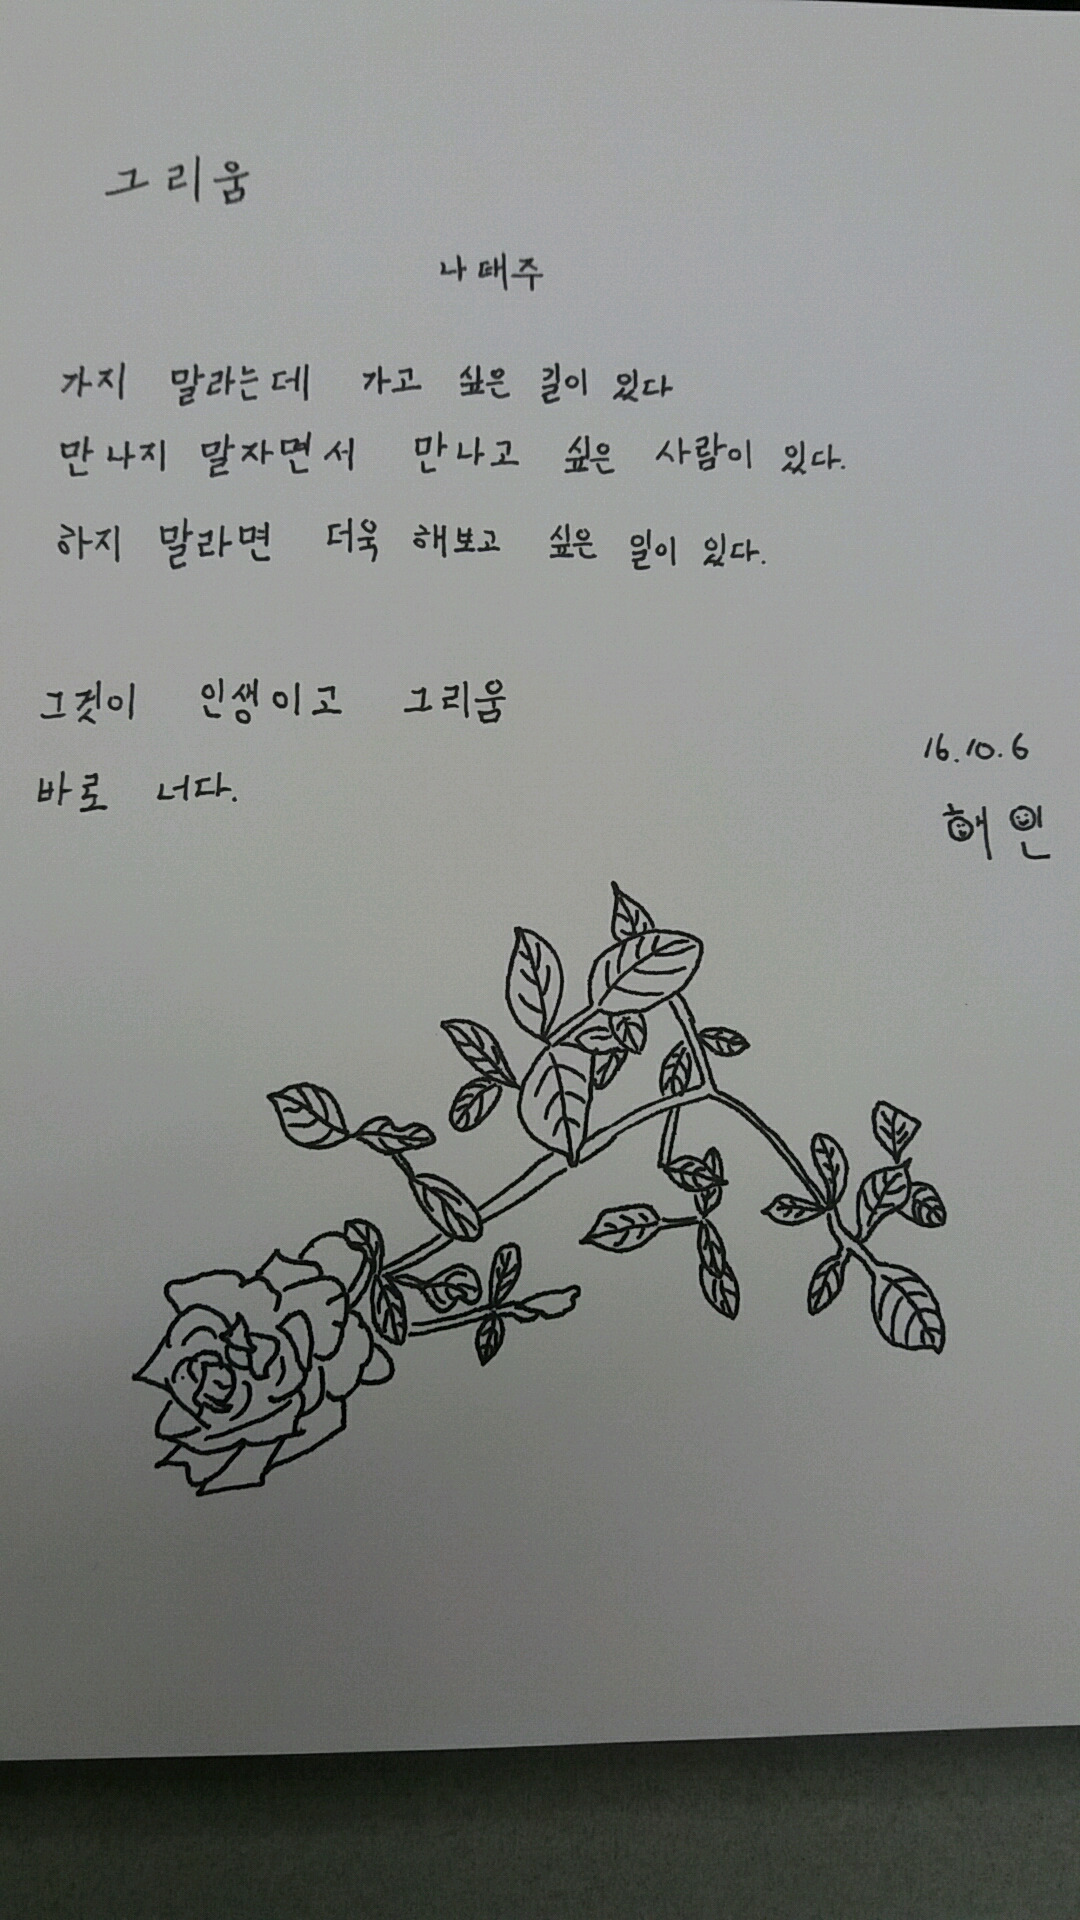 그리움
나태주
가지 말라는데 가고 싶은 길이 있다
만나지 말자면서 만나고 싶은 사람이 있다.
하지 말라면 더욱 해보고 싶은 일이 있다.
그것이 인생이고 그리움
바로 너다.
16.10.6
해인